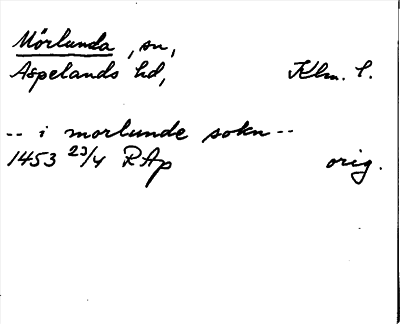 Mörlunda, sn,
Aspelands hd, Klm. l.
-- i morlunde sokn --
1453 23/4 RAp orig.